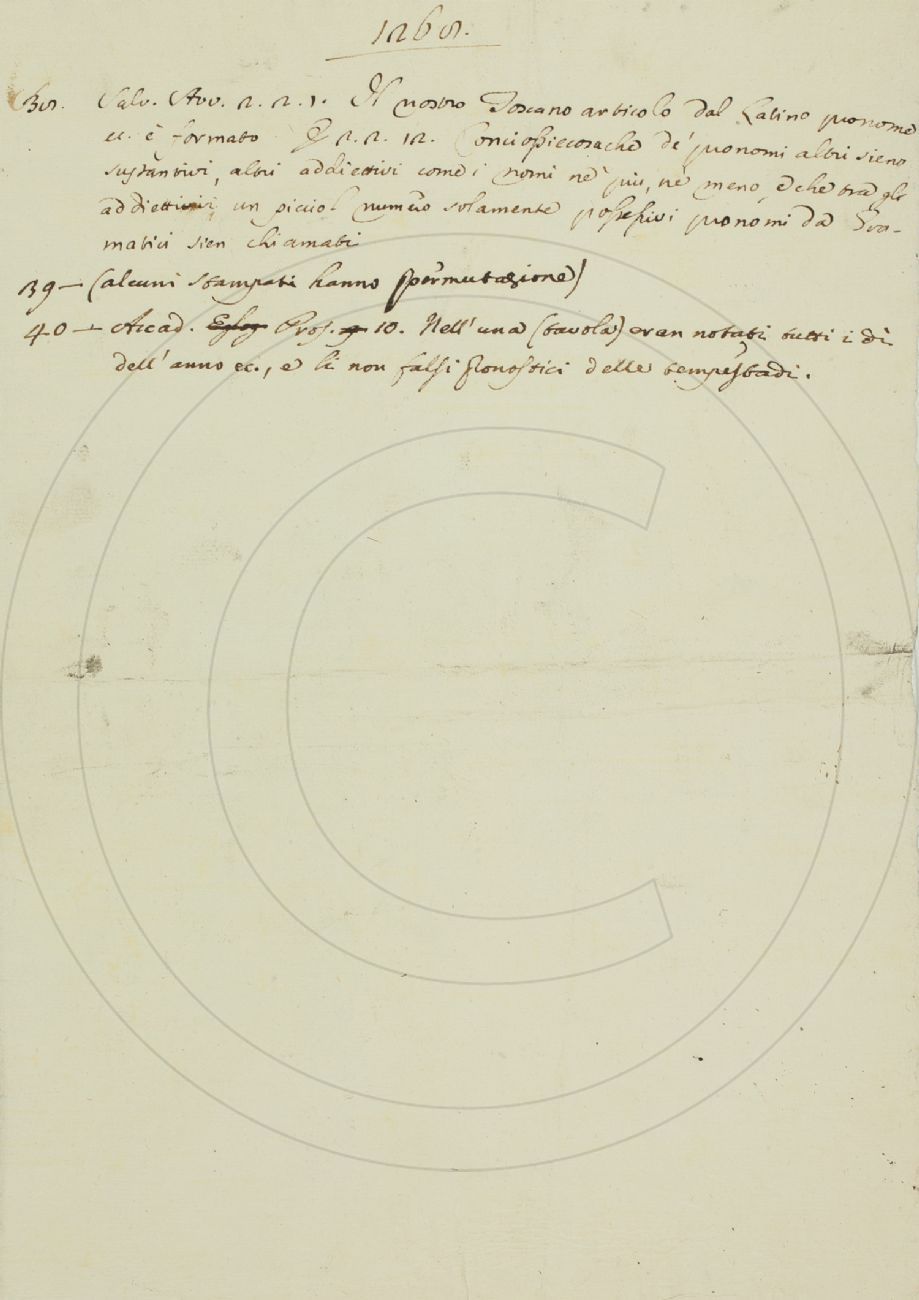 1268.
38. Salv. Avv. 2. 2. 1. Il nostro Toscano articolo dal Latino pronome
ec. è formato E 2. 2. 12. Conciossiecosachè de' pronomi altri sieno
sustantivi, altri addiettivi come i nomi nè più, nè meno, e che tra gli
addiettivi, un picciol numero solamente possessivi pronomi da Gra-
matici sien chiamati
39 — (alcuni stampati hanno permutazione)
40 — Accad. Eglog Pros. 10. Nell'una (tavola) eran notati tutti i dì
dell'anno ec., e li non falsi pronostici delle tempestadi.